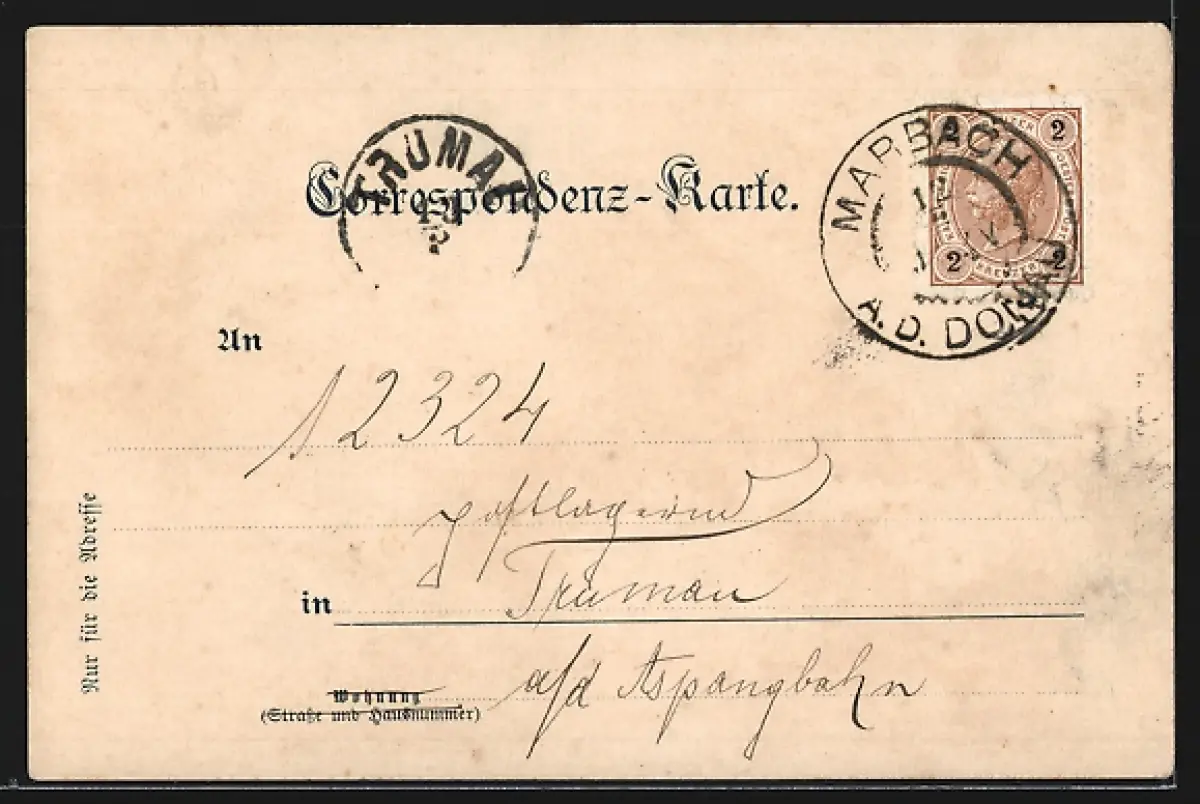 TRUMAU
Correspondenz-Karte.
MARBACH
A. D. DONAU
2 KREUZER 2
2 KREUZER 2
An
12324
postlagernd
in Trumau
a/d Aspangbahn
Wohnung
(Straße und Hausnummer)
Nur für die Adresse